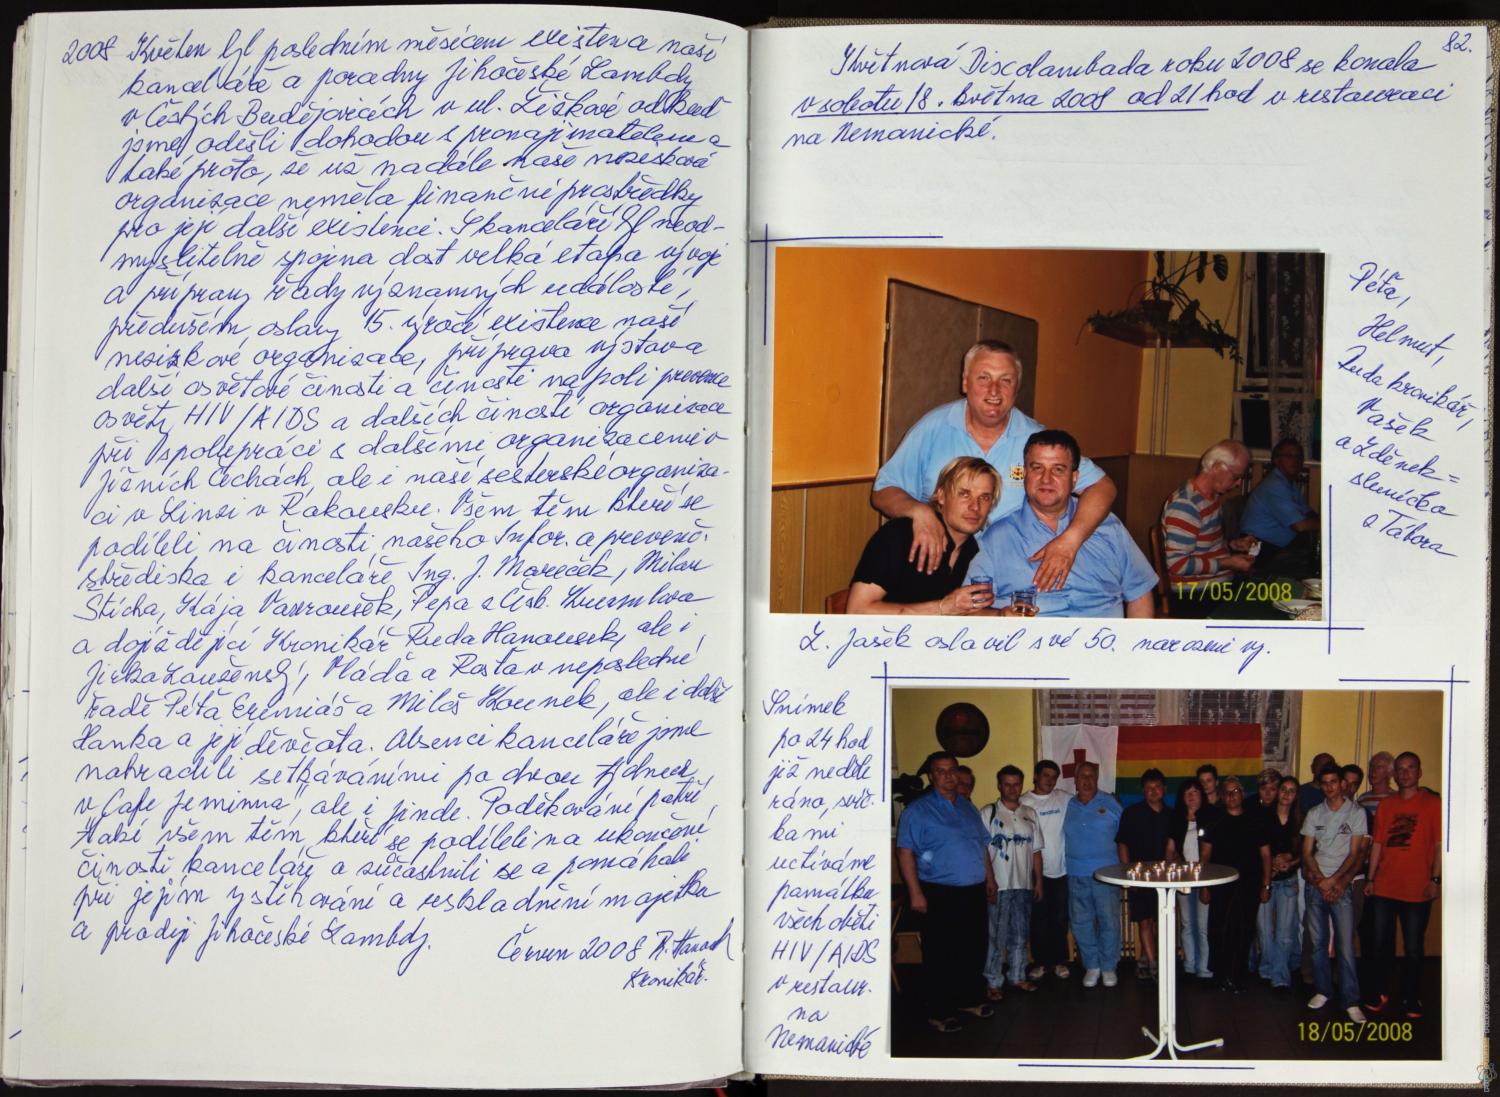 2008 Květen byl posledním měsícem existence naší
kanceláře a poradny Jihočeské Lambdy
v Českých Budějovicích v ul. Žižkově odkud
jsme odešli dohodou s pronajimatelem a
také proto, že už nadále naše nezisková
organizace neměla finanční prostředky
pro její další existenci. S kanceláří je neod-
myslitelně spojena dost velká etapa vývoje
a přípravy řady významných událostí,
předuším oslavy 15. výročí existence naší
neziskové organizace, příprava výstav a
další osvětové činosti a činosti na poli prevence
osvěty HIV/AIDS a dalších čiností organizace
při spolupráci s dalšími organizacemi v
jižních Čechách, ale i naší sesterské organiza-
ci v Linzi v Rakousku. Všem těm kteří se
podíleli na činosti našeho Infor. a prevenč.
střediska i kanceláře Ing. J. Mareček, Milan
Štícha, Kája Vavroušek, Pepa z Čb.
a dojíždějící Kronikář Ruda Hanousek, ale i
Jirka Louženský, Vláďa a Rosťa v neposlední
řadě Péťa Eremiáš a Miloš Kounek, ale i další
Hanka a její děvčata. Absenci kanceláře jsme
nahradili setkáváními po dvou týdnech
v Cafe Jeminna", ale i jinde. Poděkování patří
také všem těm, kteří se podíleli na ukončení
činosti kanceláře a zúčastnili se a pomáhali
při jejím vystěhování a uskladnění majetku
a prodeji Jihočeské Lambdy.
Červen 2008 R. Hanousek
Kronikář.
82.
Květnová Discolambada roku 2008 se konala
v sobotu 18. května 2008 od 21 hod v restauraci
na Nemanické.
Péťa,
Helmut,
Ruda kronikář,
Vašek
a Zděnek =
slunícko
z Tábora
17/05/2008
Z. Jašek oslavil své 50. narozeniny.
Snímek
po 24 hod
již neděle
ráno, svíč-
kami
uctíváme
památku
všech obětí
HIV/AIDS
v restaur.
na
Nemanické
18/05/2008